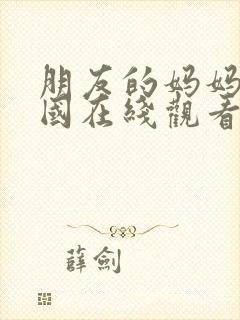 朋友的妈妈
國在綫觀看
薛劍